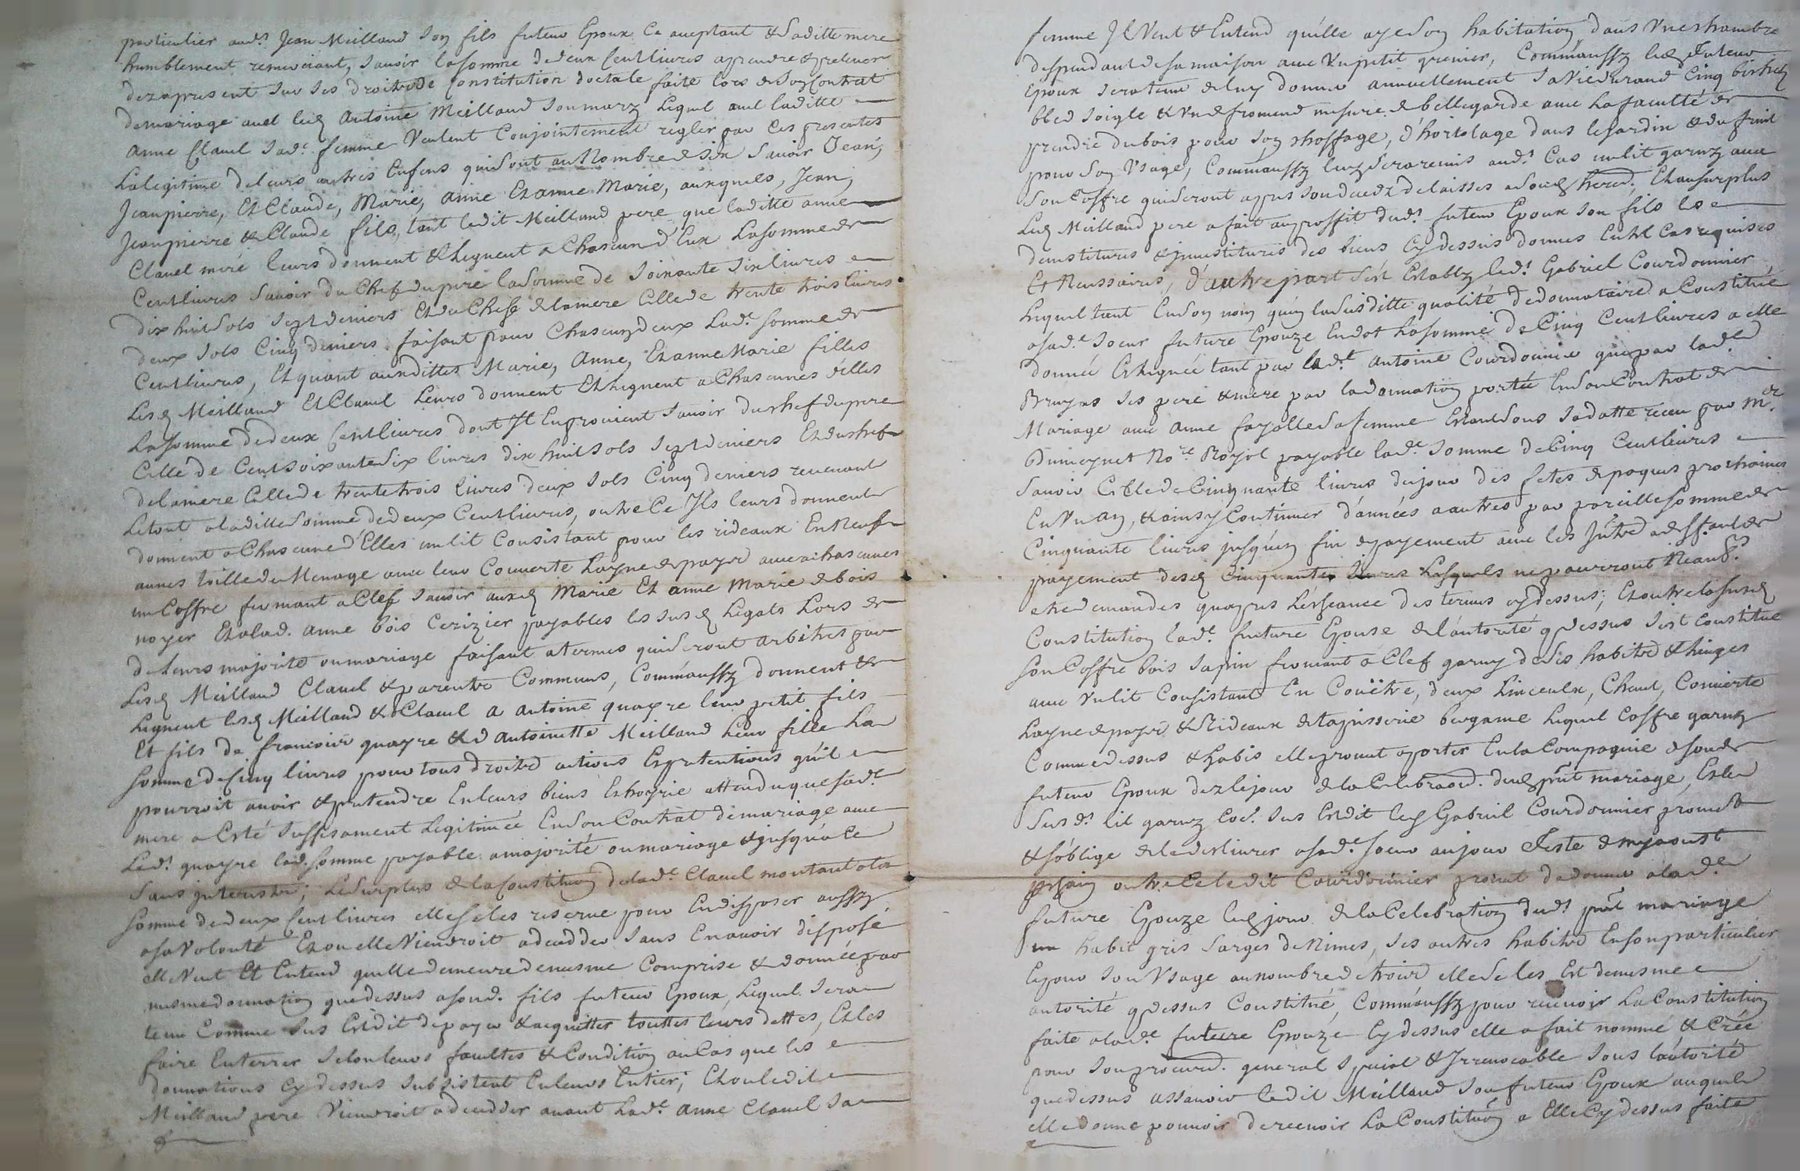 particulier aud.t Jean Meilland son fils futeur Epoux Ce aceptant & sa ditte mere
humblement remerciant, savoir la somme de deux Cent livres a prendre & prelever
dez a present sur ses droits de Constitution doctale faite lors de son Contrat
de mariage avec led Antoine Meilland son mary lequel avec laditte
anne Clavel sad.e femme Veulent Conjointement regler par Ces presentes
La legitime de leurs autres Enfens qui sont au Nombre de six Savoir Jean,
Jeanpierre, Et Claude, Marie, anne Et anne Marie, auxquels, Jean,
Jeanpierre & Claude fils, tant ledit Meilland pere que laditte anne
Clavel mere leurs donnent & Leguent a Chascun d'Eux La somme de
Cent livres Savoir du Chef du pere la somme de Soixante six livres
dix huit sols sept deniers Et du Chef de la mere Celle de trente trois livres
deux sols Cinq deniers faisant pour Chascun deux Lad.e somme de
Cent livres, Et quant auxdittes Marie, Anne, Et anne Marie filles
Lesd Meilland Et Clavel Leurs donnent Et Leguent a Chascunes delles
La somme de deux Cent livres dont Il En provient Savoir du chef du pere
Celle de Cent soixante six livres dix huit sols sept deniers Et du chef
de la mere Celle de trente trois livres deux sols Cinq deniers revenant
Le tout a laditte somme de deux Cent livres, outre Ce Ils leurs donnent
donnent a Chascune d'Elles un lit Consistant pour les rideaux En Neuf
aunes toille de Menage avec leur Couverte Layne de payis avec a chascunes
un Coffre fermant a Clef Savoir auxd Marie Et anne Marie de bois
noyer Et a lad. anne bois Cerizier payables les susd Legats Lors de
de leurs majorité ou mariage faisant a termes qui seront arbitrés par
Lesd Meilland Clavel & parents Communs, Comm'aussy donnent &
Leguent lesd Meilland & Clavel a antoine quayre leur petit fils
Et fils de francois quayre & d'antoinette Meilland leur fille La
somme de Cinq livres pour tous droits actions Et pretentions qu'il
pourroit avoir & pretendre En leurs biens Et hoyrie attendu que sad.e
mere a Esté suffisament Legitimée En son Contrat de mariage avec
Led.t quayre lad. somme payable a majorité ou mariage & jusqu'a Ce
sans interests; Le surplus de la Constitution de lad.e Clavel montant a la
somme de deux Cent livres elle se les reserve pour En disposer aussy
a sa Volonté Et ou elle Viendroit a decedder sans En avoir disposé
elle Veut Et Entend quelle demeure de mesme Comprise & donnée par
mesme donnation que dessus a sond. fils futeur Epoux, Lequel sera
tenu Comme sus Est dit de payer & acquitter touttes leurs dettes, Et les
faire Enterrer selon leurs facultes & Condition au Cas que les
donnations Cy dessus subsistent En leurs Entier; Et ou ledit
Meilland pere Viendroit a decedder avant Lad.e Anne Clavel sa
femme Il Veut & Entend qu'elle aye son habitation dans Une chambre
despendant de sa maison avec Un petit grenier, Comm'aussy led futeur
Epoux sera tenu de luy donner annuellement sa Vie durand Cinq bichets
bled soigle & un de froment mesure de bellegarde avec La faculté de
prendre du bois pour son choffage, d'hortolage dans le Jardin & du fruit
pour son Usage, Comm'aussy luy sera remis aud.t Cas un lit garny avec
son Coffre qui seront apres son deceds delaisses a sond hered. Et au surplus
Led Meilland pere a fait au proffit dud.t futeur Epoux son fils les
demistitures & jnvestitures des biens Cy dessus donnes En tel Cas requises
Et Necessaires, d'autre part s'est Etably led.t Gabriel Courdonnier
Lequel tant En son nom qu'en la susditte qualité de donnataire a Constitué
a sad.e soeur future Epouze En dot La somme de Cinq Cent livres a elle
donnée & leguée tant par led.t antoine Courdonnier que par lad.e
Bruyas ses pere & mere par la donnation portée En son Contrat de
Mariage avec Anne fayolle sa femme Estant sous sa datte receu par M.e
Dumeynet No.re Royal payable lad.e somme de Cinq Cent livres
savoir Celle de Cinquante livres du jour des fetes de paques prochaines
En Un an, & ainsy Continuer d'années a autres par pareille somme de
Cinquante livres jusqu'en fin de payement avec les Jnts a deffaut de
payement desd Cinquante livres Lesquels ne pourront Neant.
etre demandes quapres Lescance des termes cy dessus; Et outre la susd
Constitution lad.e future Epouse de l'autorité q dessus s'est Constitué
son Coffre bois sapin fermant a Clef garny de ses habits & linges
avec Un lit Consistant En Couëtre, deux Linceulx, Chevet, Couverte
Layne de payis & Rideaux de tapisserie bergame Lequel Coffre garny
Comme dessus & habis elle promet aporter En la Compagnie de sond
futeur Epoux dez le jour de la Celebraon. dud pnt mariage, Et le
susd.t lit garny Co.e sus Est dit led Gabriel Courdonnier promet
& s'oblige de le deslivrer a sad.e soeur au jour & feste de my aoust
prochain outre Ce ledit Courdonnier promet de donner a lad.e
future Epouze led jour de la Celebration dud.t pnt mariage
un habit gris sarges de Nimes, ses autres habits En son particulier
Et pour son Usage au nombre de trois elle se les Est de mesme
autorité q dessus Constitué, Comm'aussy pour recevoir La Constitution
faite a lad.e future Epouze Cy dessus elle a fait nommé & Créé
pour son procur. general special & Irrevocable sous l'autorité
que dessus assavoir ledit Meilland son futeur Epoux auquel
elle donne pouvoir de recevoir La Constituon a Elle Cy dessus faite